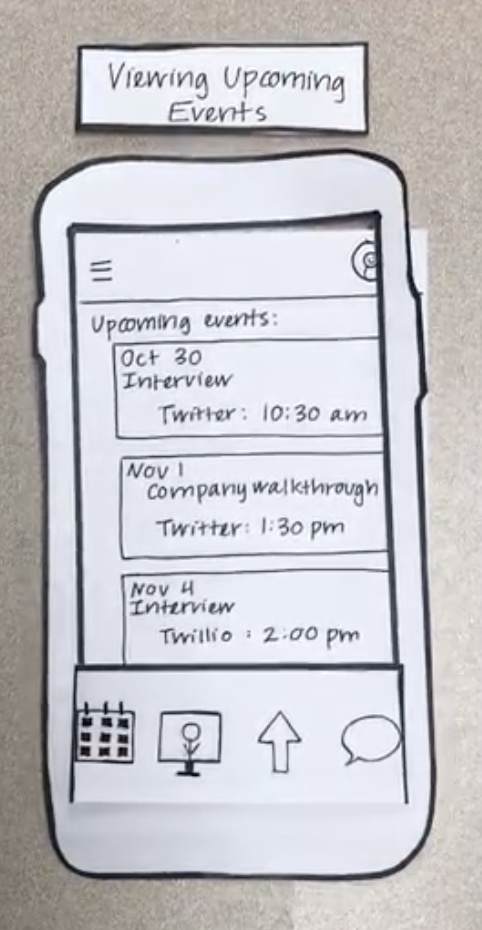 Viewing Upcoming
Events
Upcoming events:
Oct 30
Interview
Twitter: 10:30 am
Nov 1
Company walkthrough
Twitter: 1:30 pm
Nov 4
Interview
Twillio : 2:00 pm